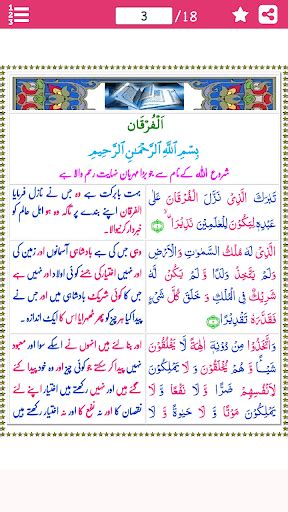 3 /18
1
2
3
اَلْفُرْقَان
بِسْمِ اللّٰهِ الرَّحْمٰنِ الرَّحِیْمِ
شروع اللہ کے نام سے جو بڑا مہربان نہایت رحم والا ہے
تَبٰرَكَ الَّذِیْ نَزَّلَ الْفُرْقَانَ عَلٰی
عَبْدِهٖ لِیَكُوْنَ لِلْعٰلَمِیْنَ نَذِیْرَاۙ ﴿۱﴾
بہت بابرکت ہے وہ جس نے نازل فرمایا
الفرقان اپنے بندے پر تاکہ وہ ہو اہل عالم کو
خبردار کرنیوالا۔
الَّذِیْ لَهٗ مُلْكُ السَّمٰوٰتِ وَ الْاَرْضِ
وَ لَمْ یَتَّخِذْ وَلَدًا وَّ لَمْ یَكُنْ لَّهٗ
شَرِیْكٌ فِی الْمُلْكِ وَ خَلَقَ كُلَّ شَیْءٍ
فَقَدَّرَهٗ تَقْدِیْرًا ﴿۲﴾
وہی جس کی ہے بادشاہی آسمانوں اور زمین کی
اور نہیں اختیار کی جس نے کوئی اولاد اور نہیں ہے
جس کا کوئی شریک بادشاہی میں اور جس نے
پیدا کیا ہر چیز کو پھر ٹھہرایا اس کا ایک اندازہ۔
وَ اتَّخَذُوْا مِنْ دُوْنِهٖۤ اٰلِهَةً لَّا یَخْلُقُوْنَ
شَیْـًٔا وَّ هُمْ یُخْلَقُوْنَ وَ لَا یَمْلِكُوْنَ
لِاَنْفُسِهِمْ ضَرًّا وَّ لَا نَفْعًا وَّ لَا
یَمْلِكُوْنَ مَوْتًا وَّ لَا حَیٰوةً وَّ لَا
اور بنائے ہیں انہوں نے اسکے سوا اور
نہیں پیدا کر سکتے جو کوئی چیز اور وہ خود پیدا کئے
گئے ہیں اور نہیں اختیار رکھتے وہ اپنے لئے
نقصان کا اور نہ نفع کا اور نہ اختیار رکھتے ہیں